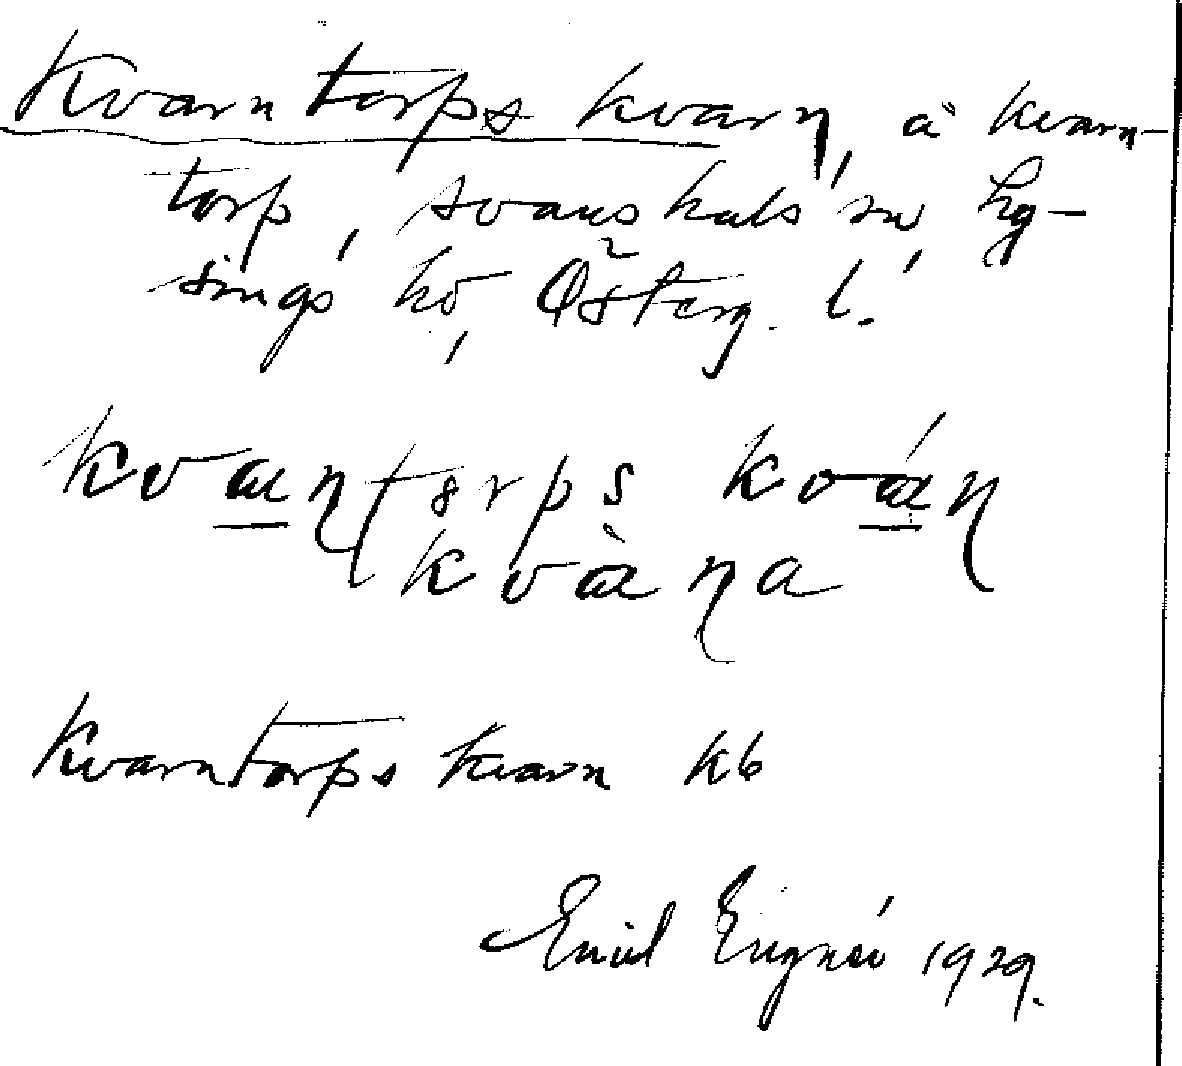 Kvarntorps kvarn, å Kvarn-
torp, Svanshals sn, Ly-
sings hd, Österg. l.
kvaɳtorps kváɳ
kvàɳa
Kvarntorps kvarn kb
Emil 1929.